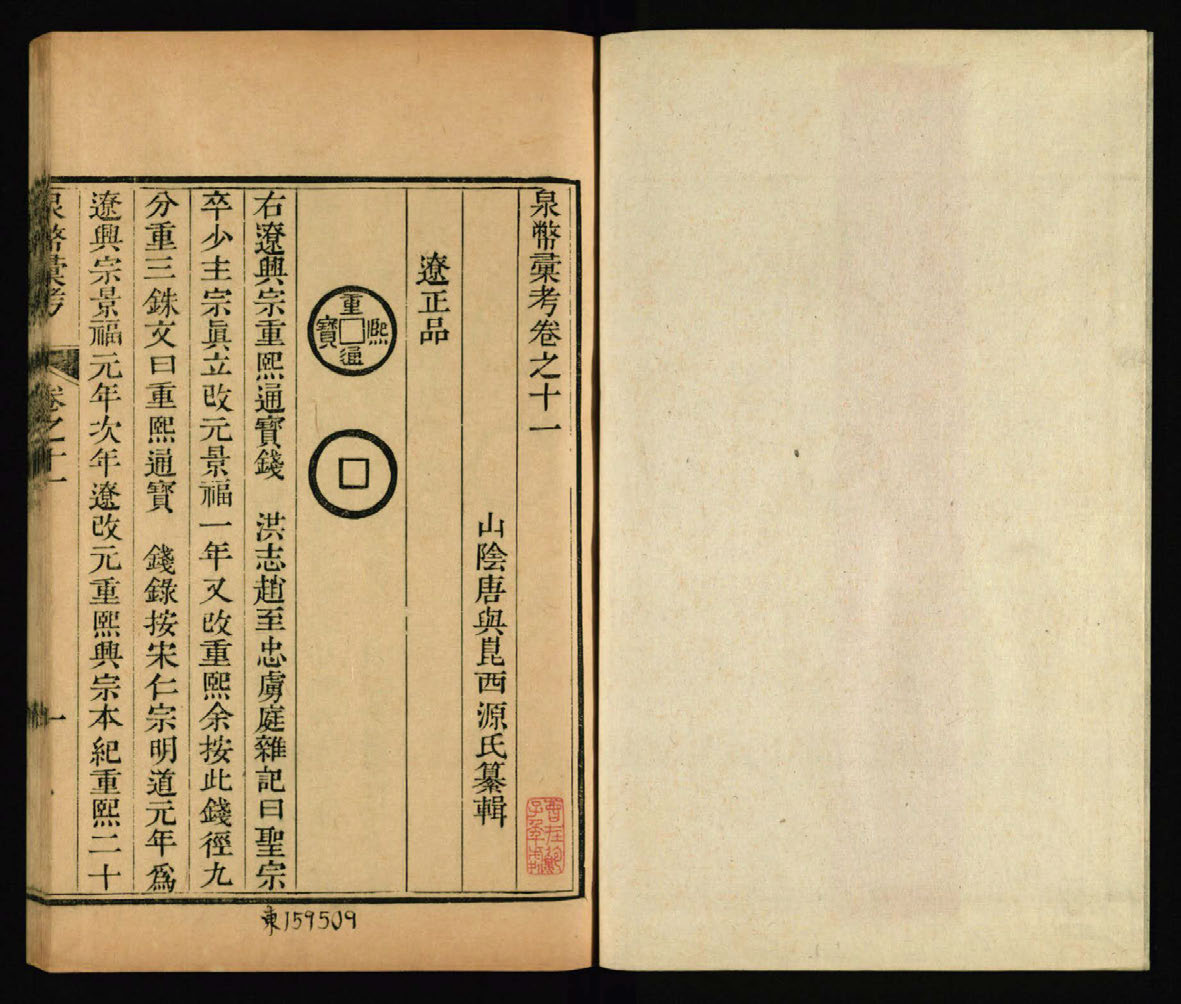 泉幣彙考卷之十一
山陰唐與崑西源氏纂輯
遼正品
重熙通寶
右遼興宗重熙通寶錢 洪志趙至忠虜庭雜記曰聖宗
卒少主宗眞立改元景福一年又改重熙余按此錢徑九
分重三銖文曰重熙通寶 錢錄按宋仁宗明道元年爲
遼興宗景福元年次年遼改元重熙興宗本紀重熙二十
泉幣彙考 卷之十一 一
東159509